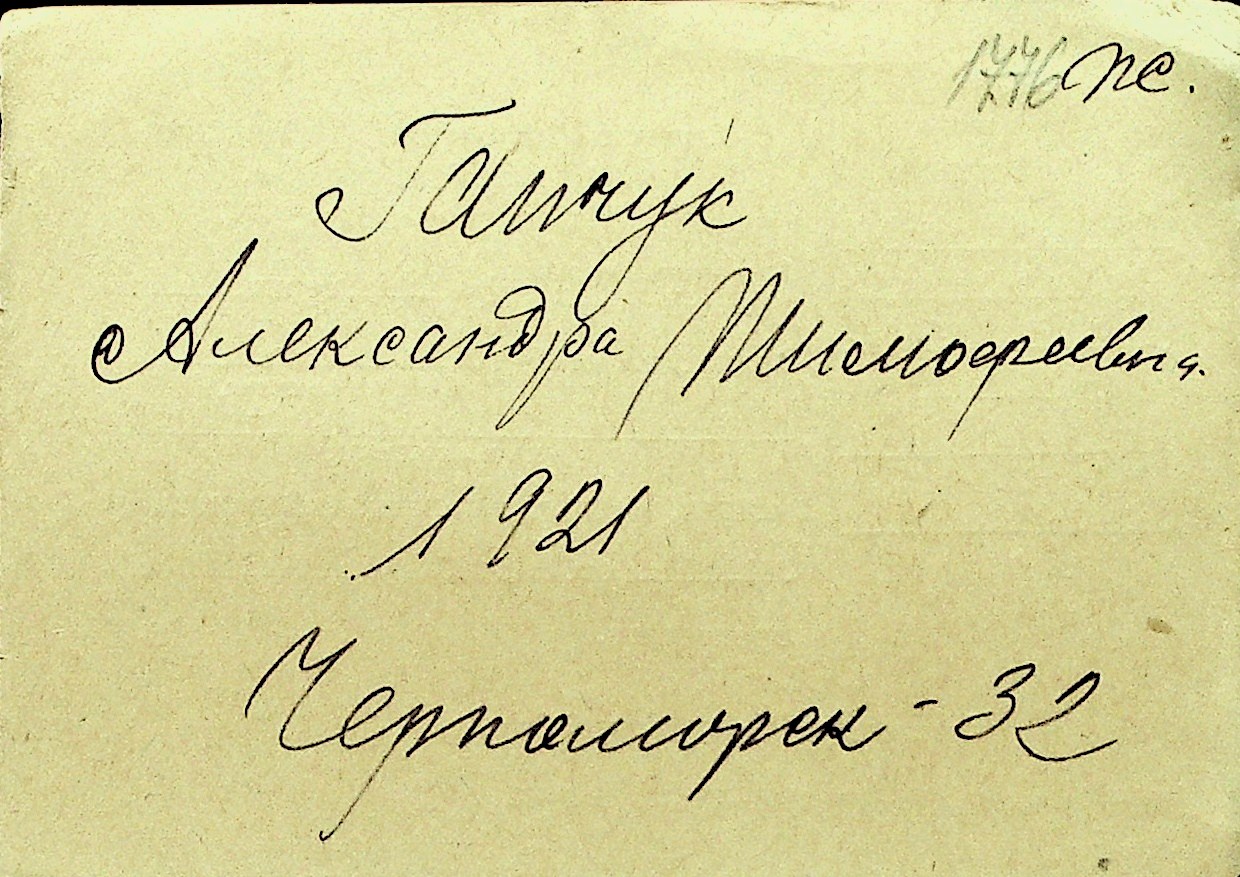 1776 пс.
Гапчук
Александра Тимофеевна.
1921
Черноморск - 32